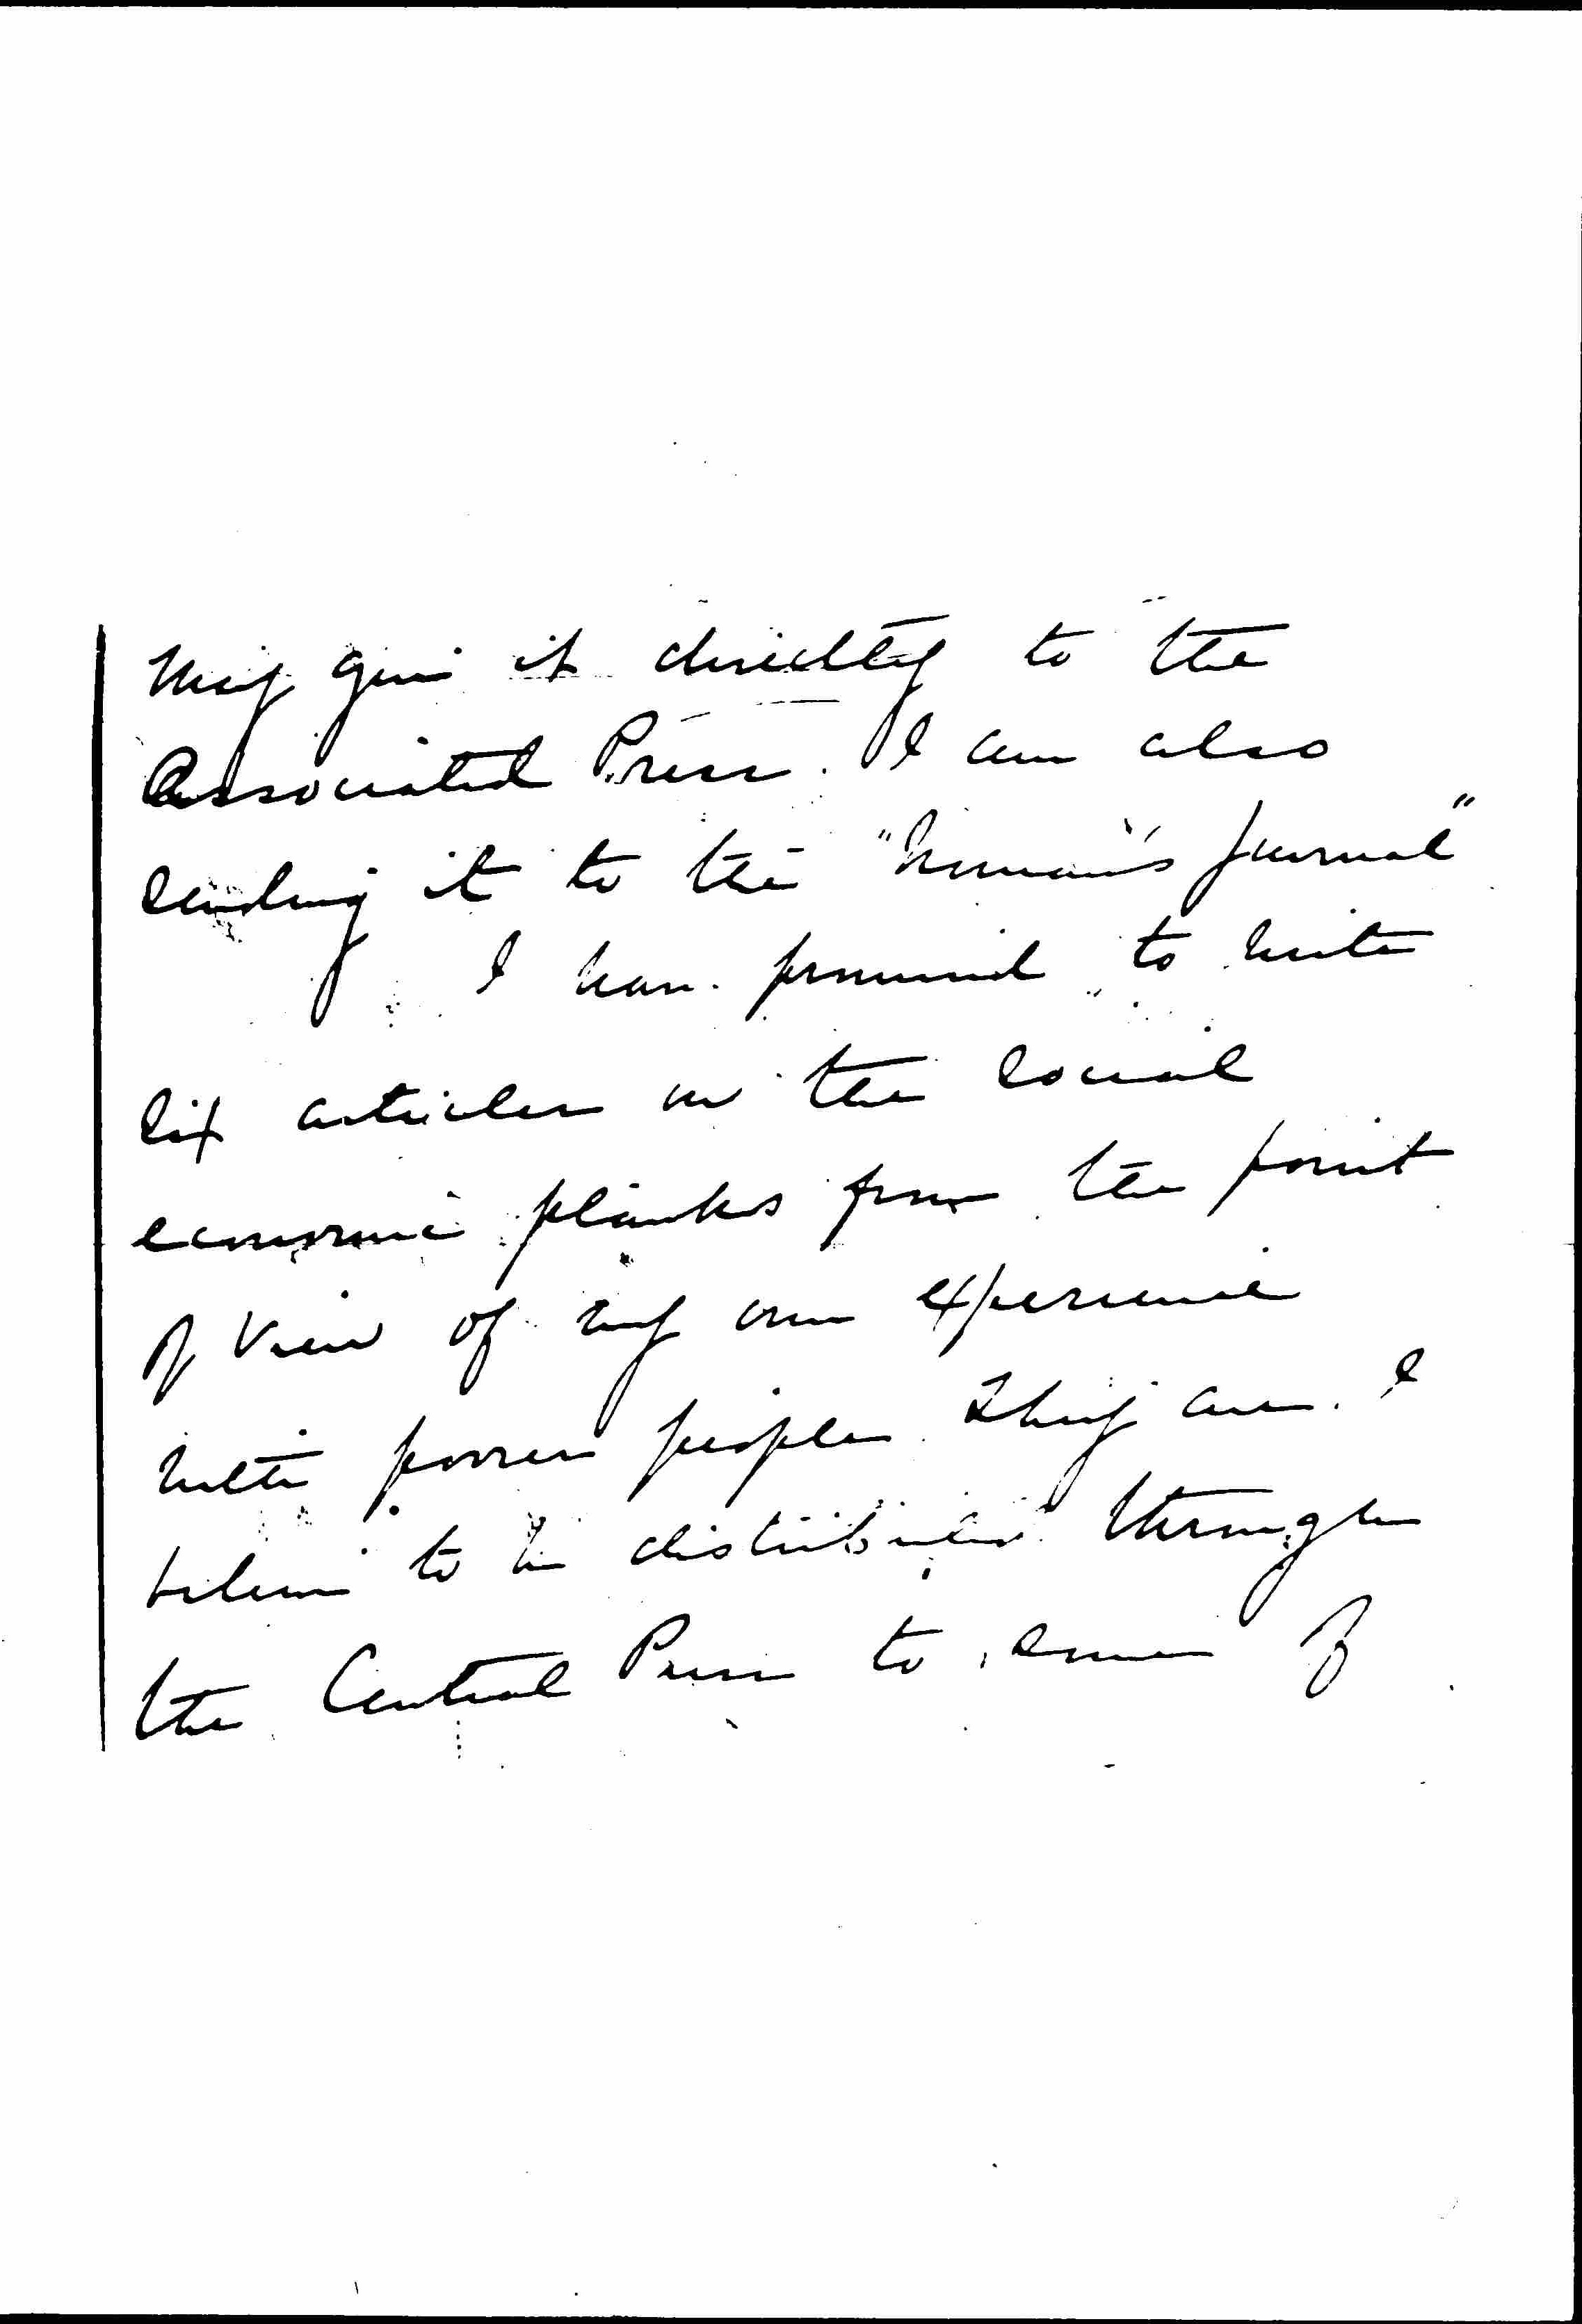 may give it directly to the
Associated Press. I am also
sending it to the "Woman's Journal"
I have promised to write
six articles on the social
economic planks from the point
of view of my own experience
with poorer people. They are I
believe to be distributed through
the Central Press to some of